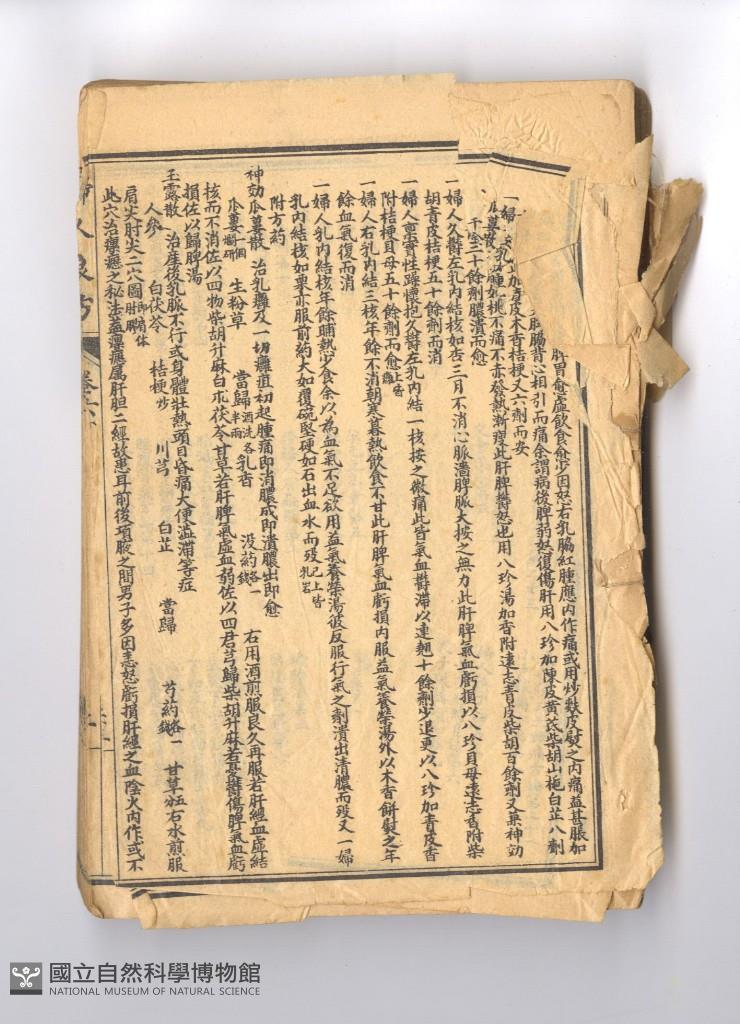 脾胃愈虛飲食愈少因怒右乳腸紅腫應內作痛或用炒麩皮熨之內痛益甚脹加
腸背心相引而痛余謂病後脾弱怒復傷肝用八珍加陳皮黃芪柴胡山梔白芷八劑
加青皮木香桔梗又六劑而安
一婦 乳 腫如桃不痛不赤發熱漸瘦此肝脾鬱怒也用八珍湯加香附遠志青皮柴胡百餘劑又兼神効
瓜蔞散 三十餘劑膿潰而愈
一婦人久鬱左乳內結核如杏三月不消心脈濇脾脈大按之無力此肝脾氣血虧損以八珍貝母遠志香附柴
胡青皮桔梗五十餘劑而消
一婦人稟實性躁懷抱久鬱左乳內結一核按之微痛此皆氣血鬱滯以連翹十餘劑少退更以八珍加青皮香
附桔梗貝母五十餘劑而愈 已上皆
一婦人右乳內結三核年餘不消朝寒暮熱飲食不甘此肝脾氣血虧損內服益氣養榮湯外以木香餅熨之年
餘血氣復而消
一婦人乳內結核年餘晡熱少食余以為血氣不足欲用益氣養榮湯彼反服行氣之劑潰出清膿而歿又一婦
乳內結核如栗亦服前藥大如覆碗堅硬如石出血水而歿 已上皆乳岩
附方藥
神効瓜蔞散 治乳癰及一切癰疽初起腫痛即消膿成即潰膿出即愈
瓜蔞 一個爛研 生粉草 當歸 酒洗各半兩 乳香 沒藥 各一錢 右用酒煎服良久再服若肝經血虛結
核而不消佐以四物柴胡升麻白朮茯苓甘草若肝脾氣虛血弱佐以四君芎歸柴胡升麻若憂鬱傷脾氣血虧
損佐以歸脾湯
玉露散 治產後乳脈不行或身體壯熱頭目昏痛大便澁滯等症
人參 白茯苓 桔梗 炒 川芎 白芷 當歸 芍藥 各一錢 甘草 五分 右水煎服
肩尖肘尖二穴圖
此穴治瘰癧之秘法蓋瘰癧屬肝胆二經故患耳前後項腋之間男子多因恚怒虧損肝經之血陰火內作或不
婦人良方
卷
國立自然科學博物館
NATIONAL MUSEUM OF NATURAL SCIENCE